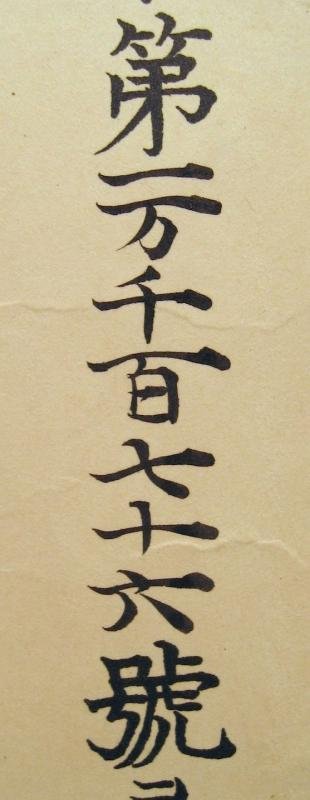 第一万千百七十六號